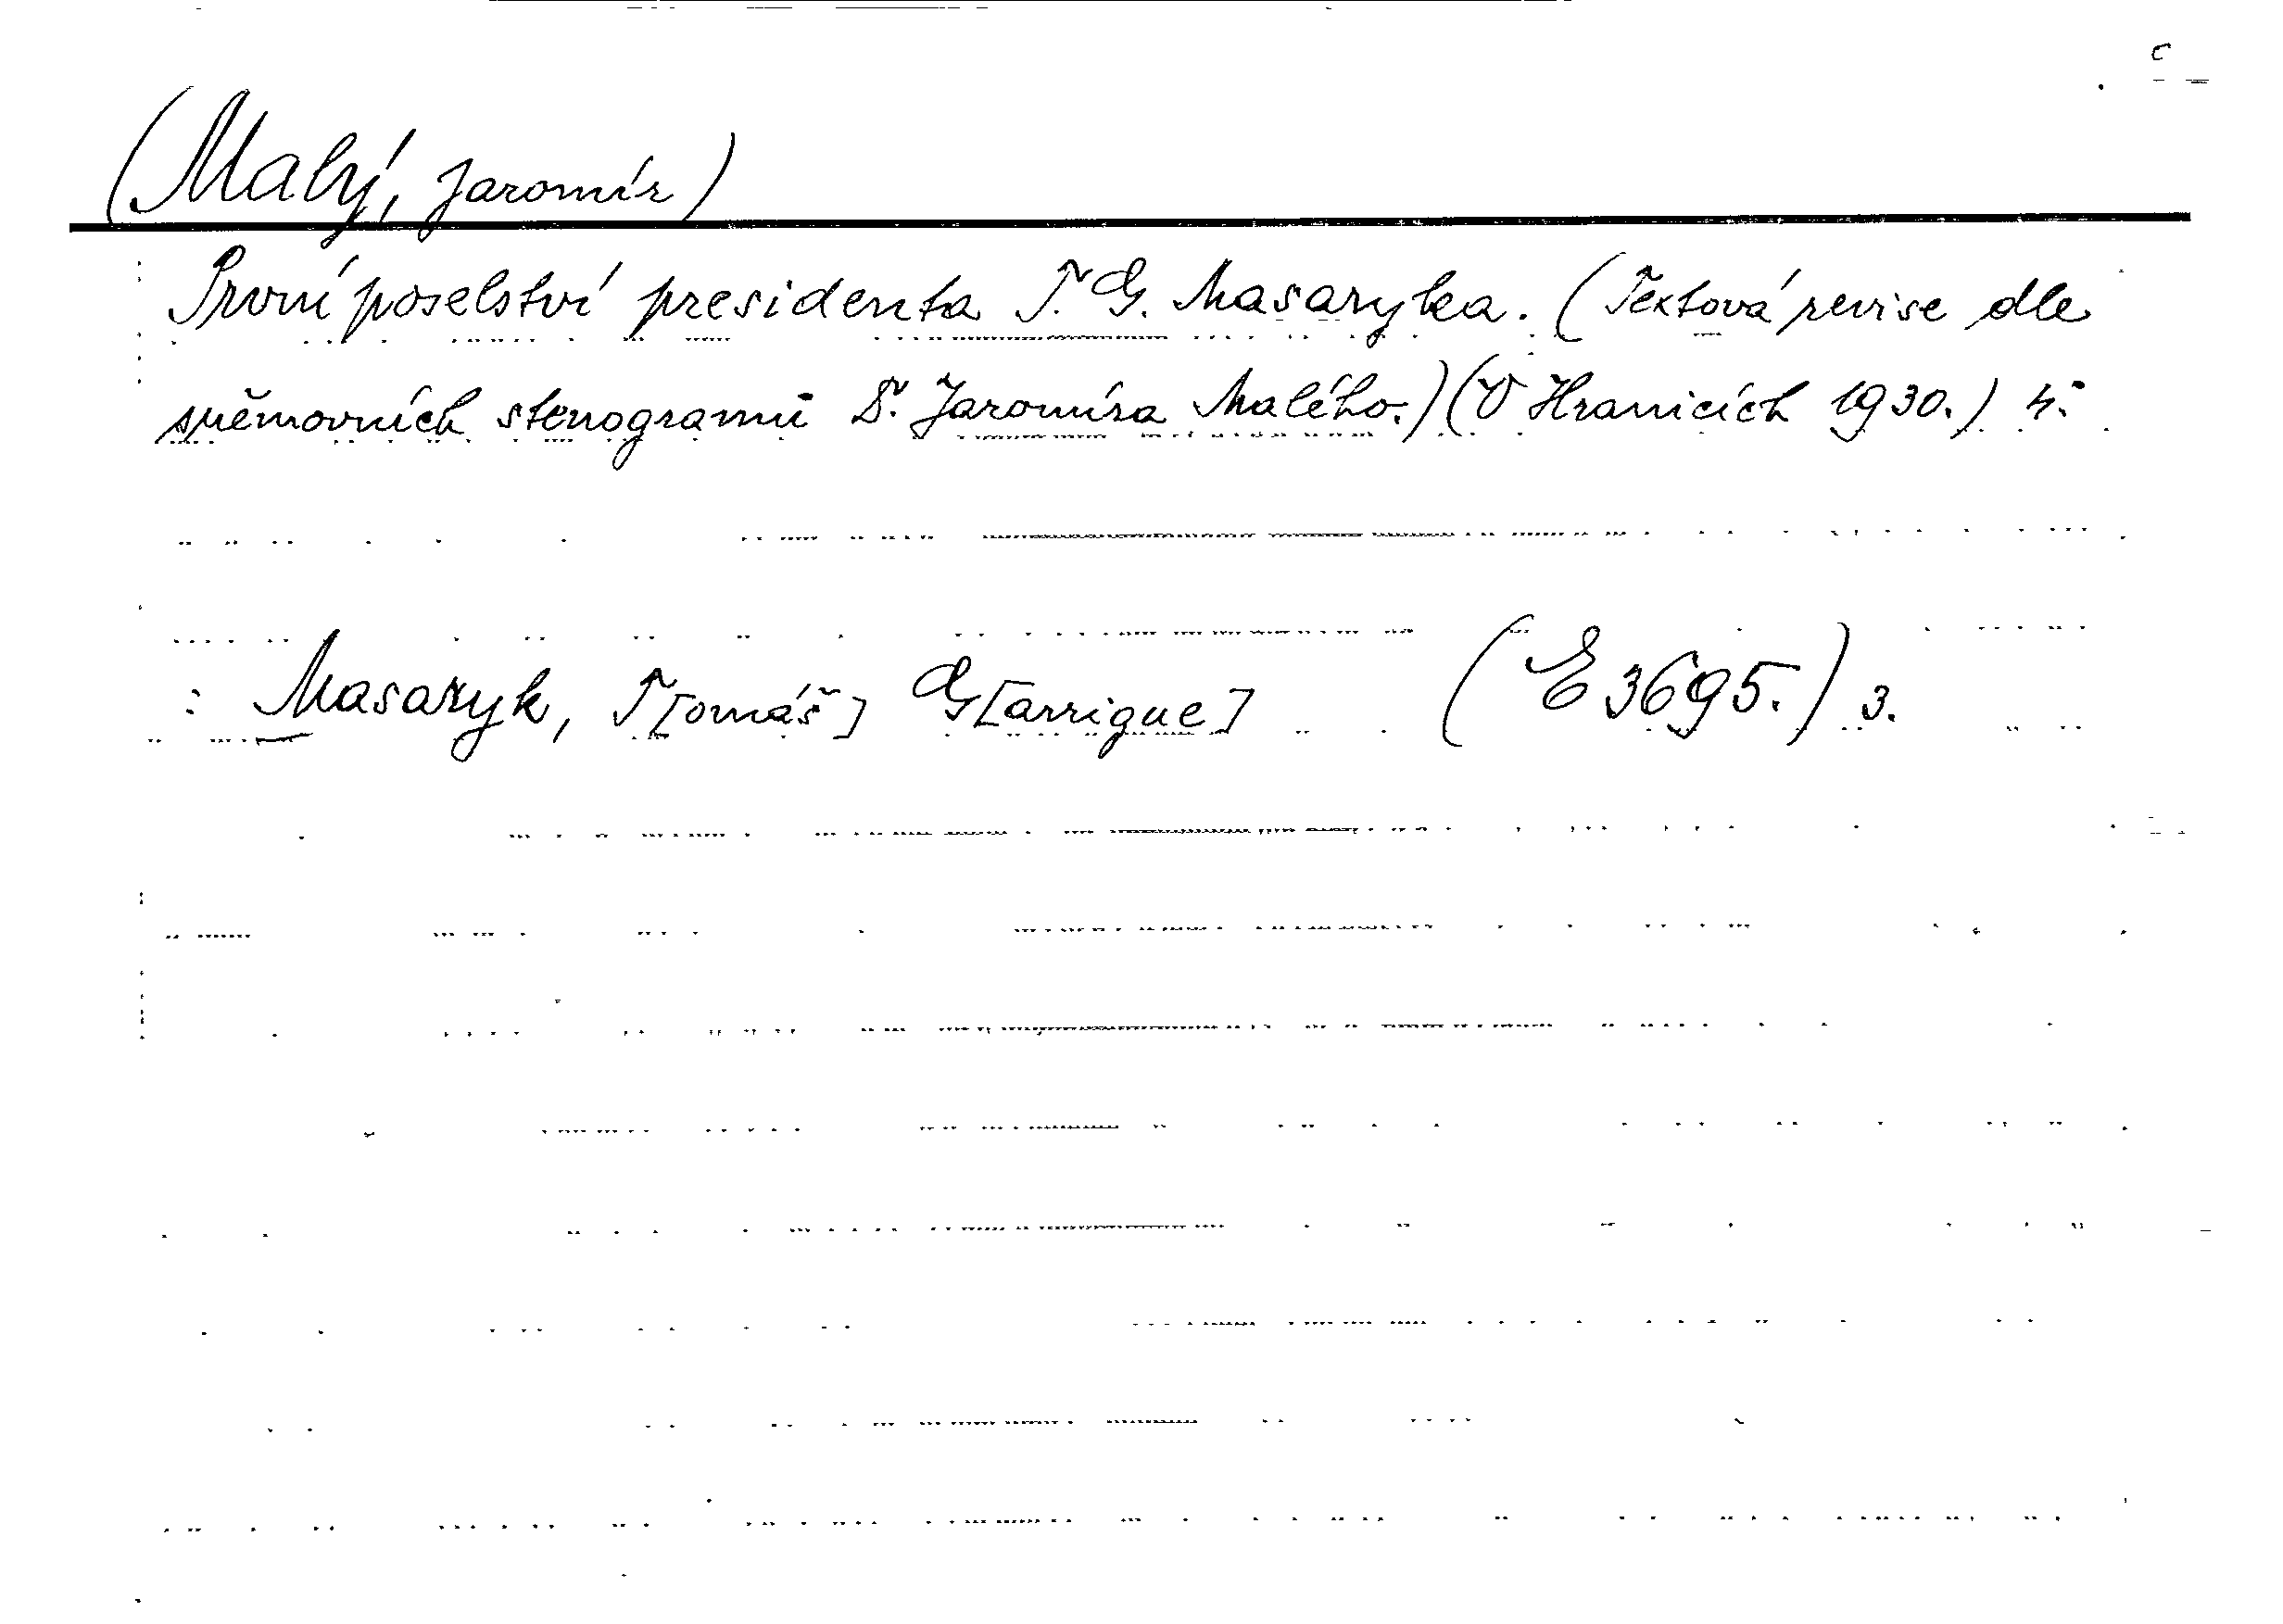 (Malý, Jaromír)
První poselství presidenta T. G. Masaryka. (Textová revise dle
sněmovních stenogramů D.ʳ Jaromíra Malého.) (V Hranicích 1930.) 4:°
: Masaryk, T[omáš] G[arrigue] (E 3695.) 3.